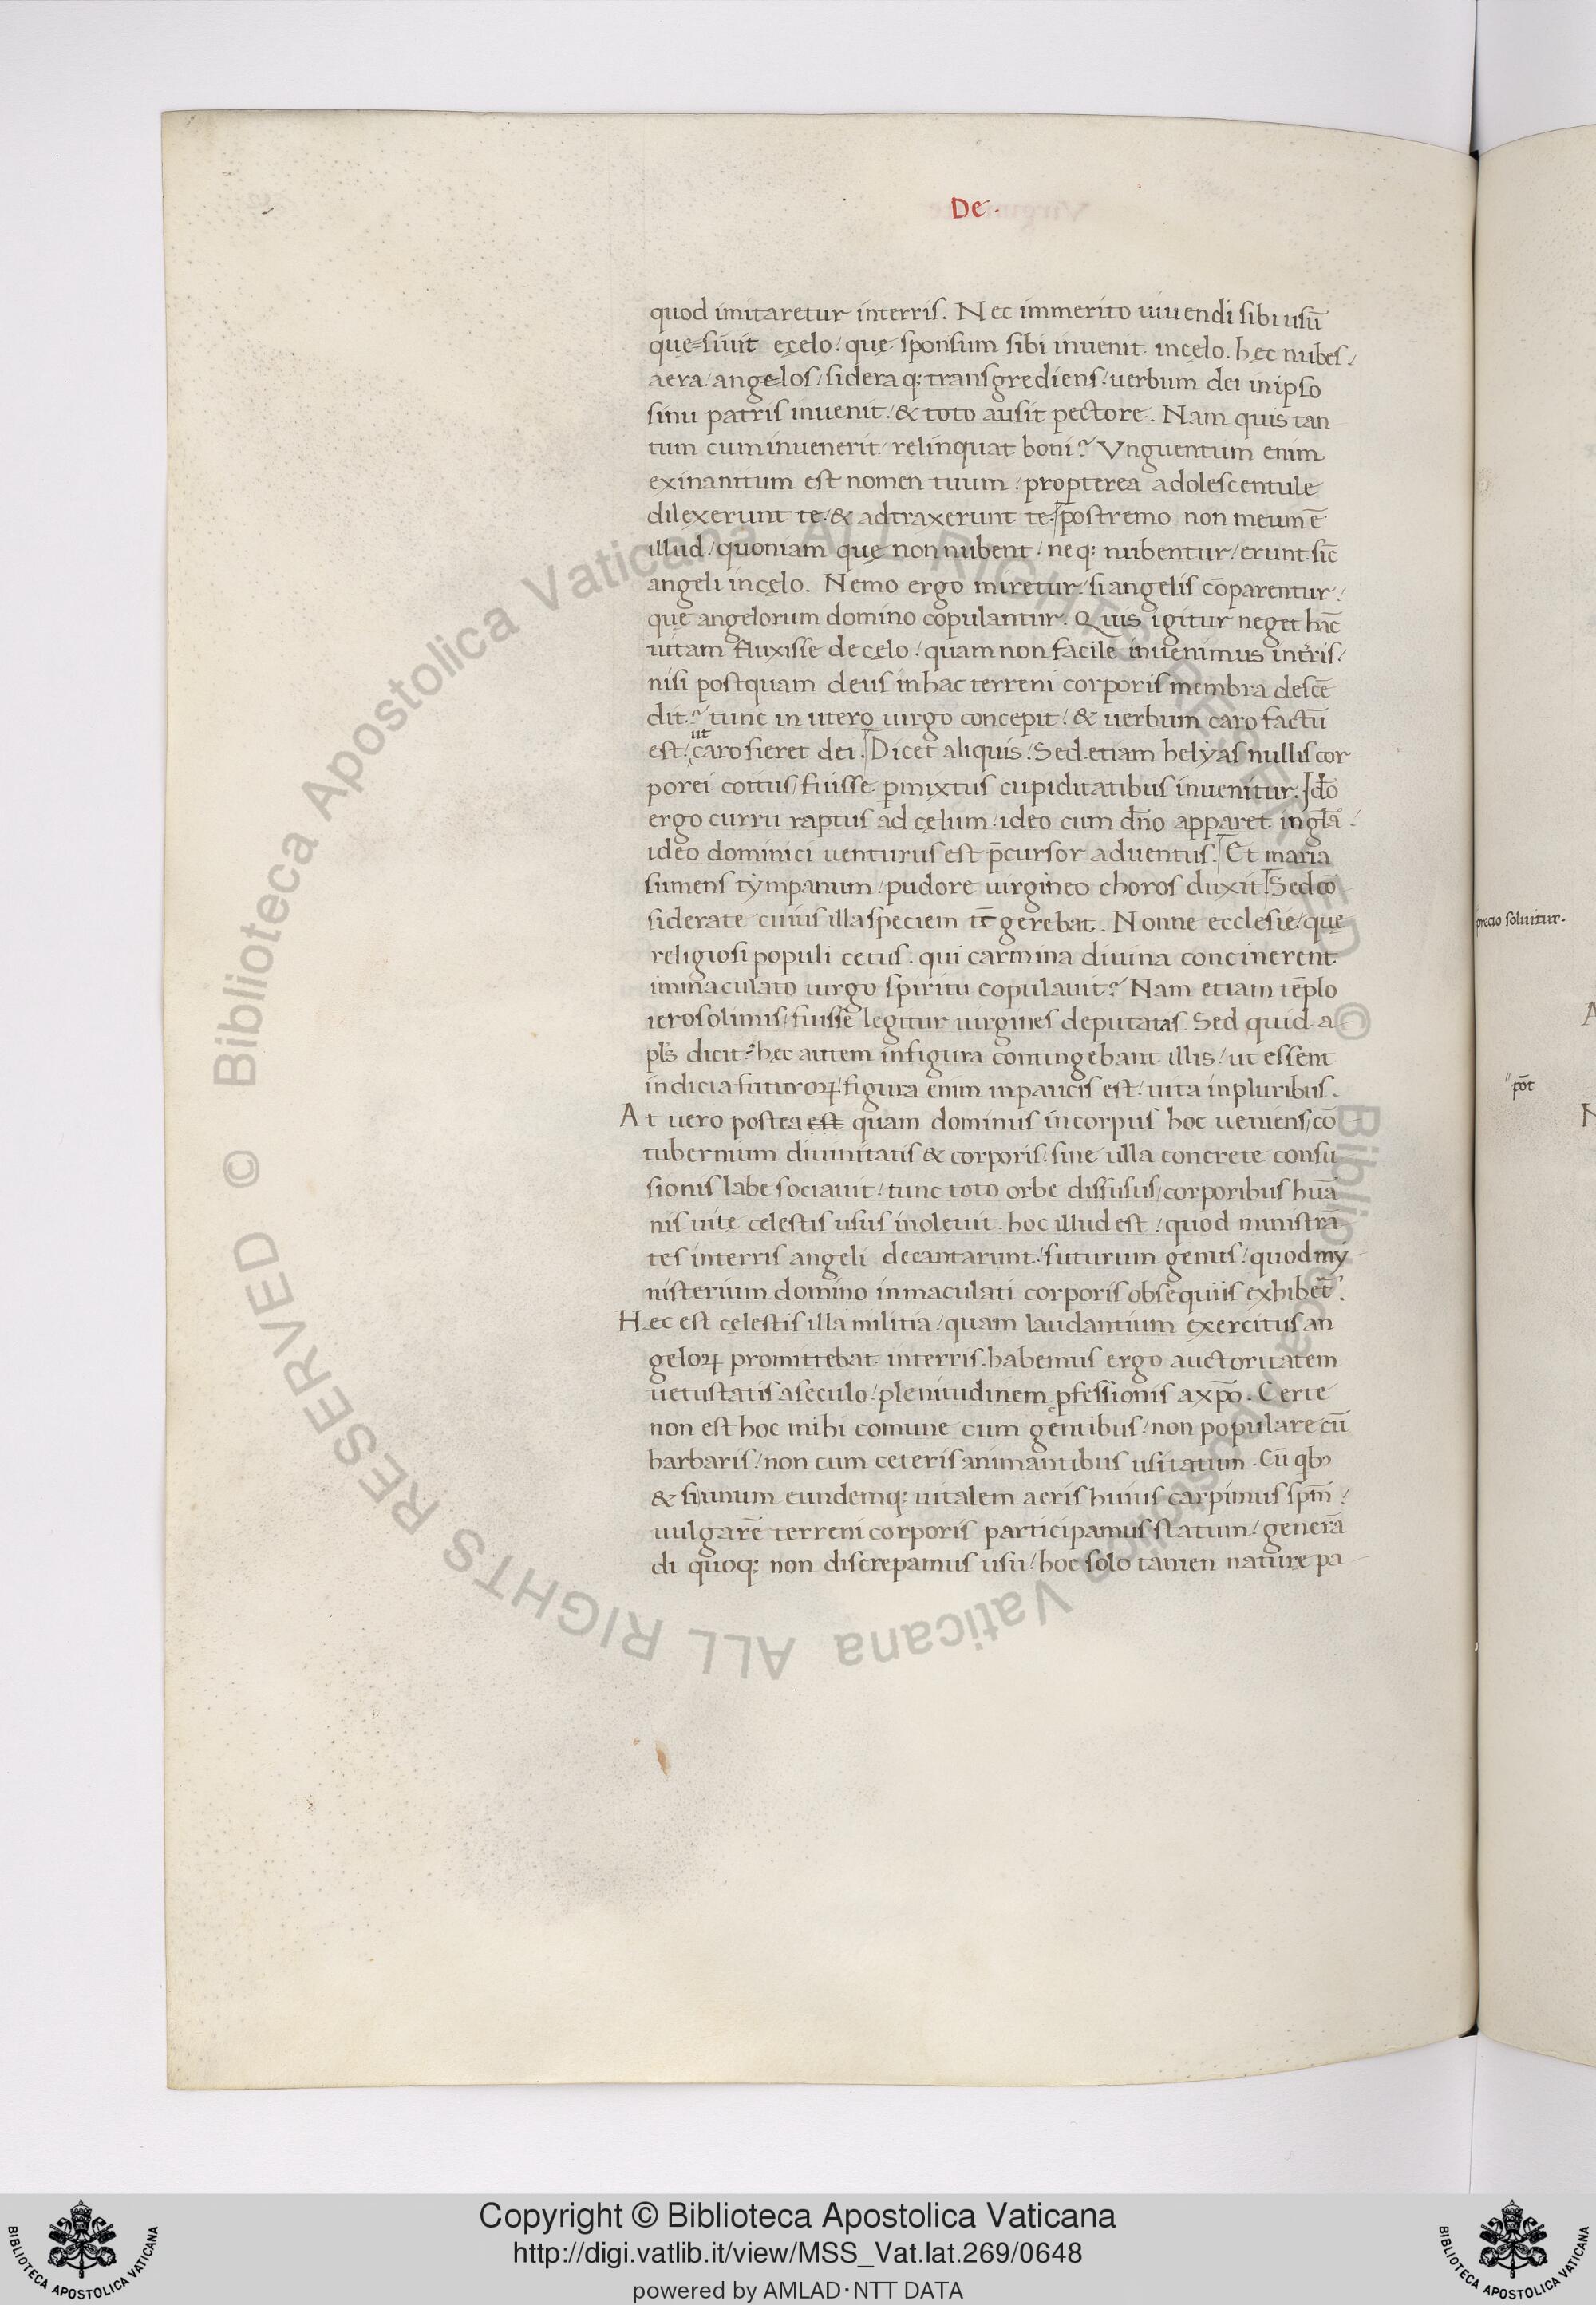 De.
quod imitaretur interris. Nec immerito uiuendi sibi usū
que=siuit ecęlo / quę sponsum sibi inuenit incęlo. hęc nubes /
aera / ange=los / sideraq; transgrediens / uerbum dei inipso
sinu patris inuenit / & toto ausit pectore. Nam quis tan
tum cum inuenerit / relinquat boni? Vnguentum enim
exinanitum est nomen tuum / propterea adolescentule
dilexerunt te / & adtraxerunt te. postremo non meum ē
illud / quoniam quę non nubent / neq; nubentur / erunt sic̄
angeli incęlo. Nemo ergo miretur / si angelis cōparentur /
quę angelorum domino copulantur. Quis igitur neget hāc
uitam fluxisse decęlo / quam non facile inuenimus int̄ris /
nisi postquam deus inhac terreni corporis membra descē
dit? tunc in utero uirgo concepit / & uerbum caro factū
est / ut caro fieret dei. Dicet aliquis / Sed etiam helyas nullis cor
porei coitus / fuisse p̄mixtus cupiditatibus inuenitur. Idō
ergo curru raptus ad cęlum / ideo cum dn̄o apparet in gl̄a /
ideo dominici uenturus est p̄cursor aduentus. Et maria
sumens tympanum / pudore uirgineo choros duxit. Sed cō
siderate cuius illa speciem tc̄ gerebat. Nonne ecclesię / quę
religiosi populi cetus. qui carmina diuina concinerent
immaculato uirgo spiritu copulauit? Nam etiam tēplo
ierosolimis / fuisse legitur uirgines deputatas. Sed quid a
pl̄s dicit? hęc autem infigura contingebant illis / ut essent
indicia futuroꝝ. figura enim inpaucis est / uita inpluribus.
At uero postea est quam dominus incorpus hoc ueniens / cō
tubernium diuinitatis & corporis / sine ulla concrete confu
sionis labe sociauit / tunc toto orbe diffusus / corporibus huā
nis uitę celestis usus inoleuit. hoc illud est / quod ministrā
tes interris angeli decantarunt / futurum genus / quod my
nisterium domino inmaculati corporis obsequiis exhibet̄.
Hęc est cęlestis illa militia / quam laudantium exercitus an
geloꝝ promittebat interris. habemus ergo auctoritatem
uetustatis aseculo / plenitudinem ꝓfessionis axp̄o. Certe
non est hoc mihi comune cum gentibus / non populare cū
barbaris / non cum ceteris animantibus usitatum. Cū qbꝰ
& si unum eundemq; uitalem aeris huius carpimus spm̄ /
uulgarē terreni corporis participamus statum / generā
di quoq; non discrepamus usu / hoc solo tamen naturę pa
precio soluitur.
pōt
Copyright © Biblioteca Apostolica Vaticana
http://digi.vatlib.it/view/MSS_Vat.lat.269/0648
powered by AMLAD·NTT DATA
BIBLIOTECA APOSTOLICA VATICANA
BIBLIOTECA APOSTOLICA VATICANA
© Biblioteca Apostolica Vaticana ALL RIGHTS RESERVED
© Biblioteca Apostolica Vaticana ALL RIGHTS RESERVED